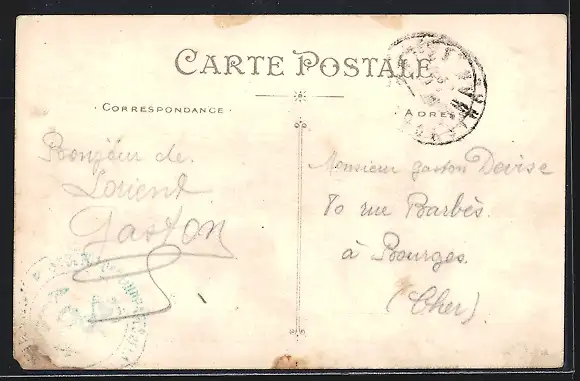 CARTE POSTALE
CORRESPONDANCE
ADRES
Bonjour de
Lorient
Gaston
Monsieur Gaston Devise
70 rue Barbès
à Bourges
(Cher)